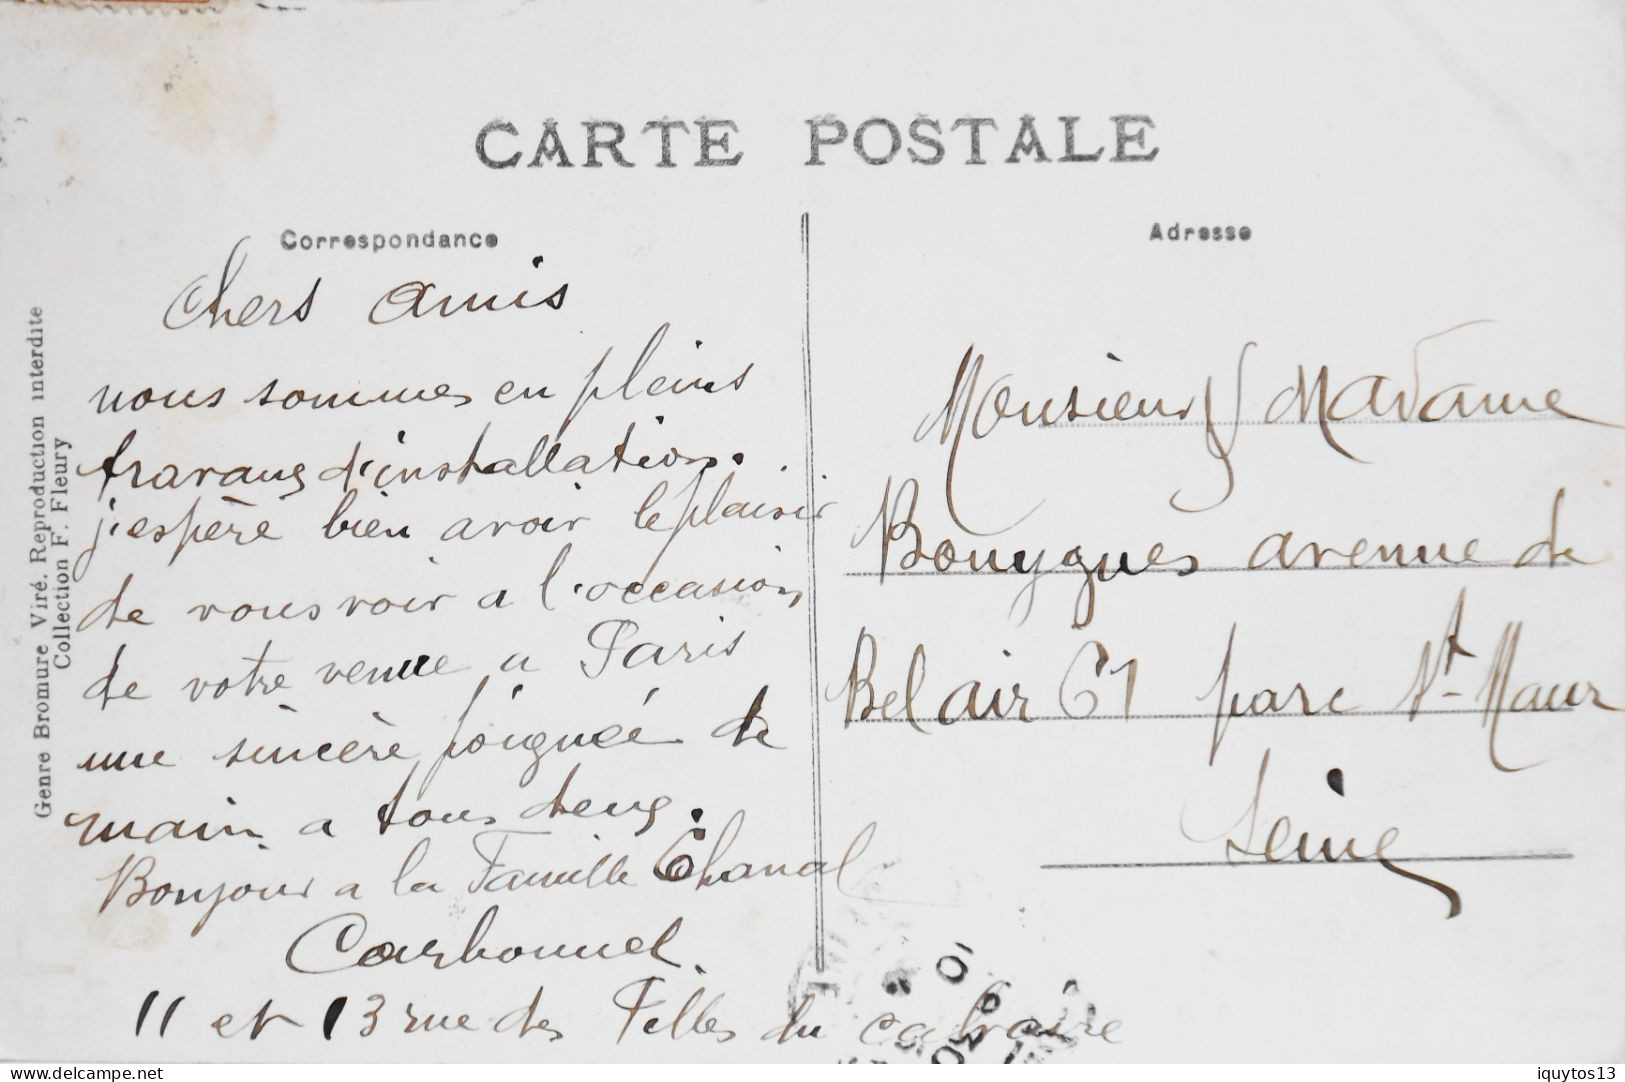 CARTE POSTALE
Correspondance
Adresse
Chers amis
nous sommes en pleins
travaux d'installation.
j'espère bien avoir le plaisir
de vous voir a l'occasion
de votre venue a Paris
une sincère poignée de
main a tous deux.
Bonjour a la Famille Chanal
Carbonnel
11 et 13 rue des Filles du calvaire
Monsieur & Madame
Bouygues avenue de
Bel air 61 parc St-Maur
Seine
Genre Bromure Viré. Reproduction interdite
Collection F. Fleury
delcampe.net
iquytos13